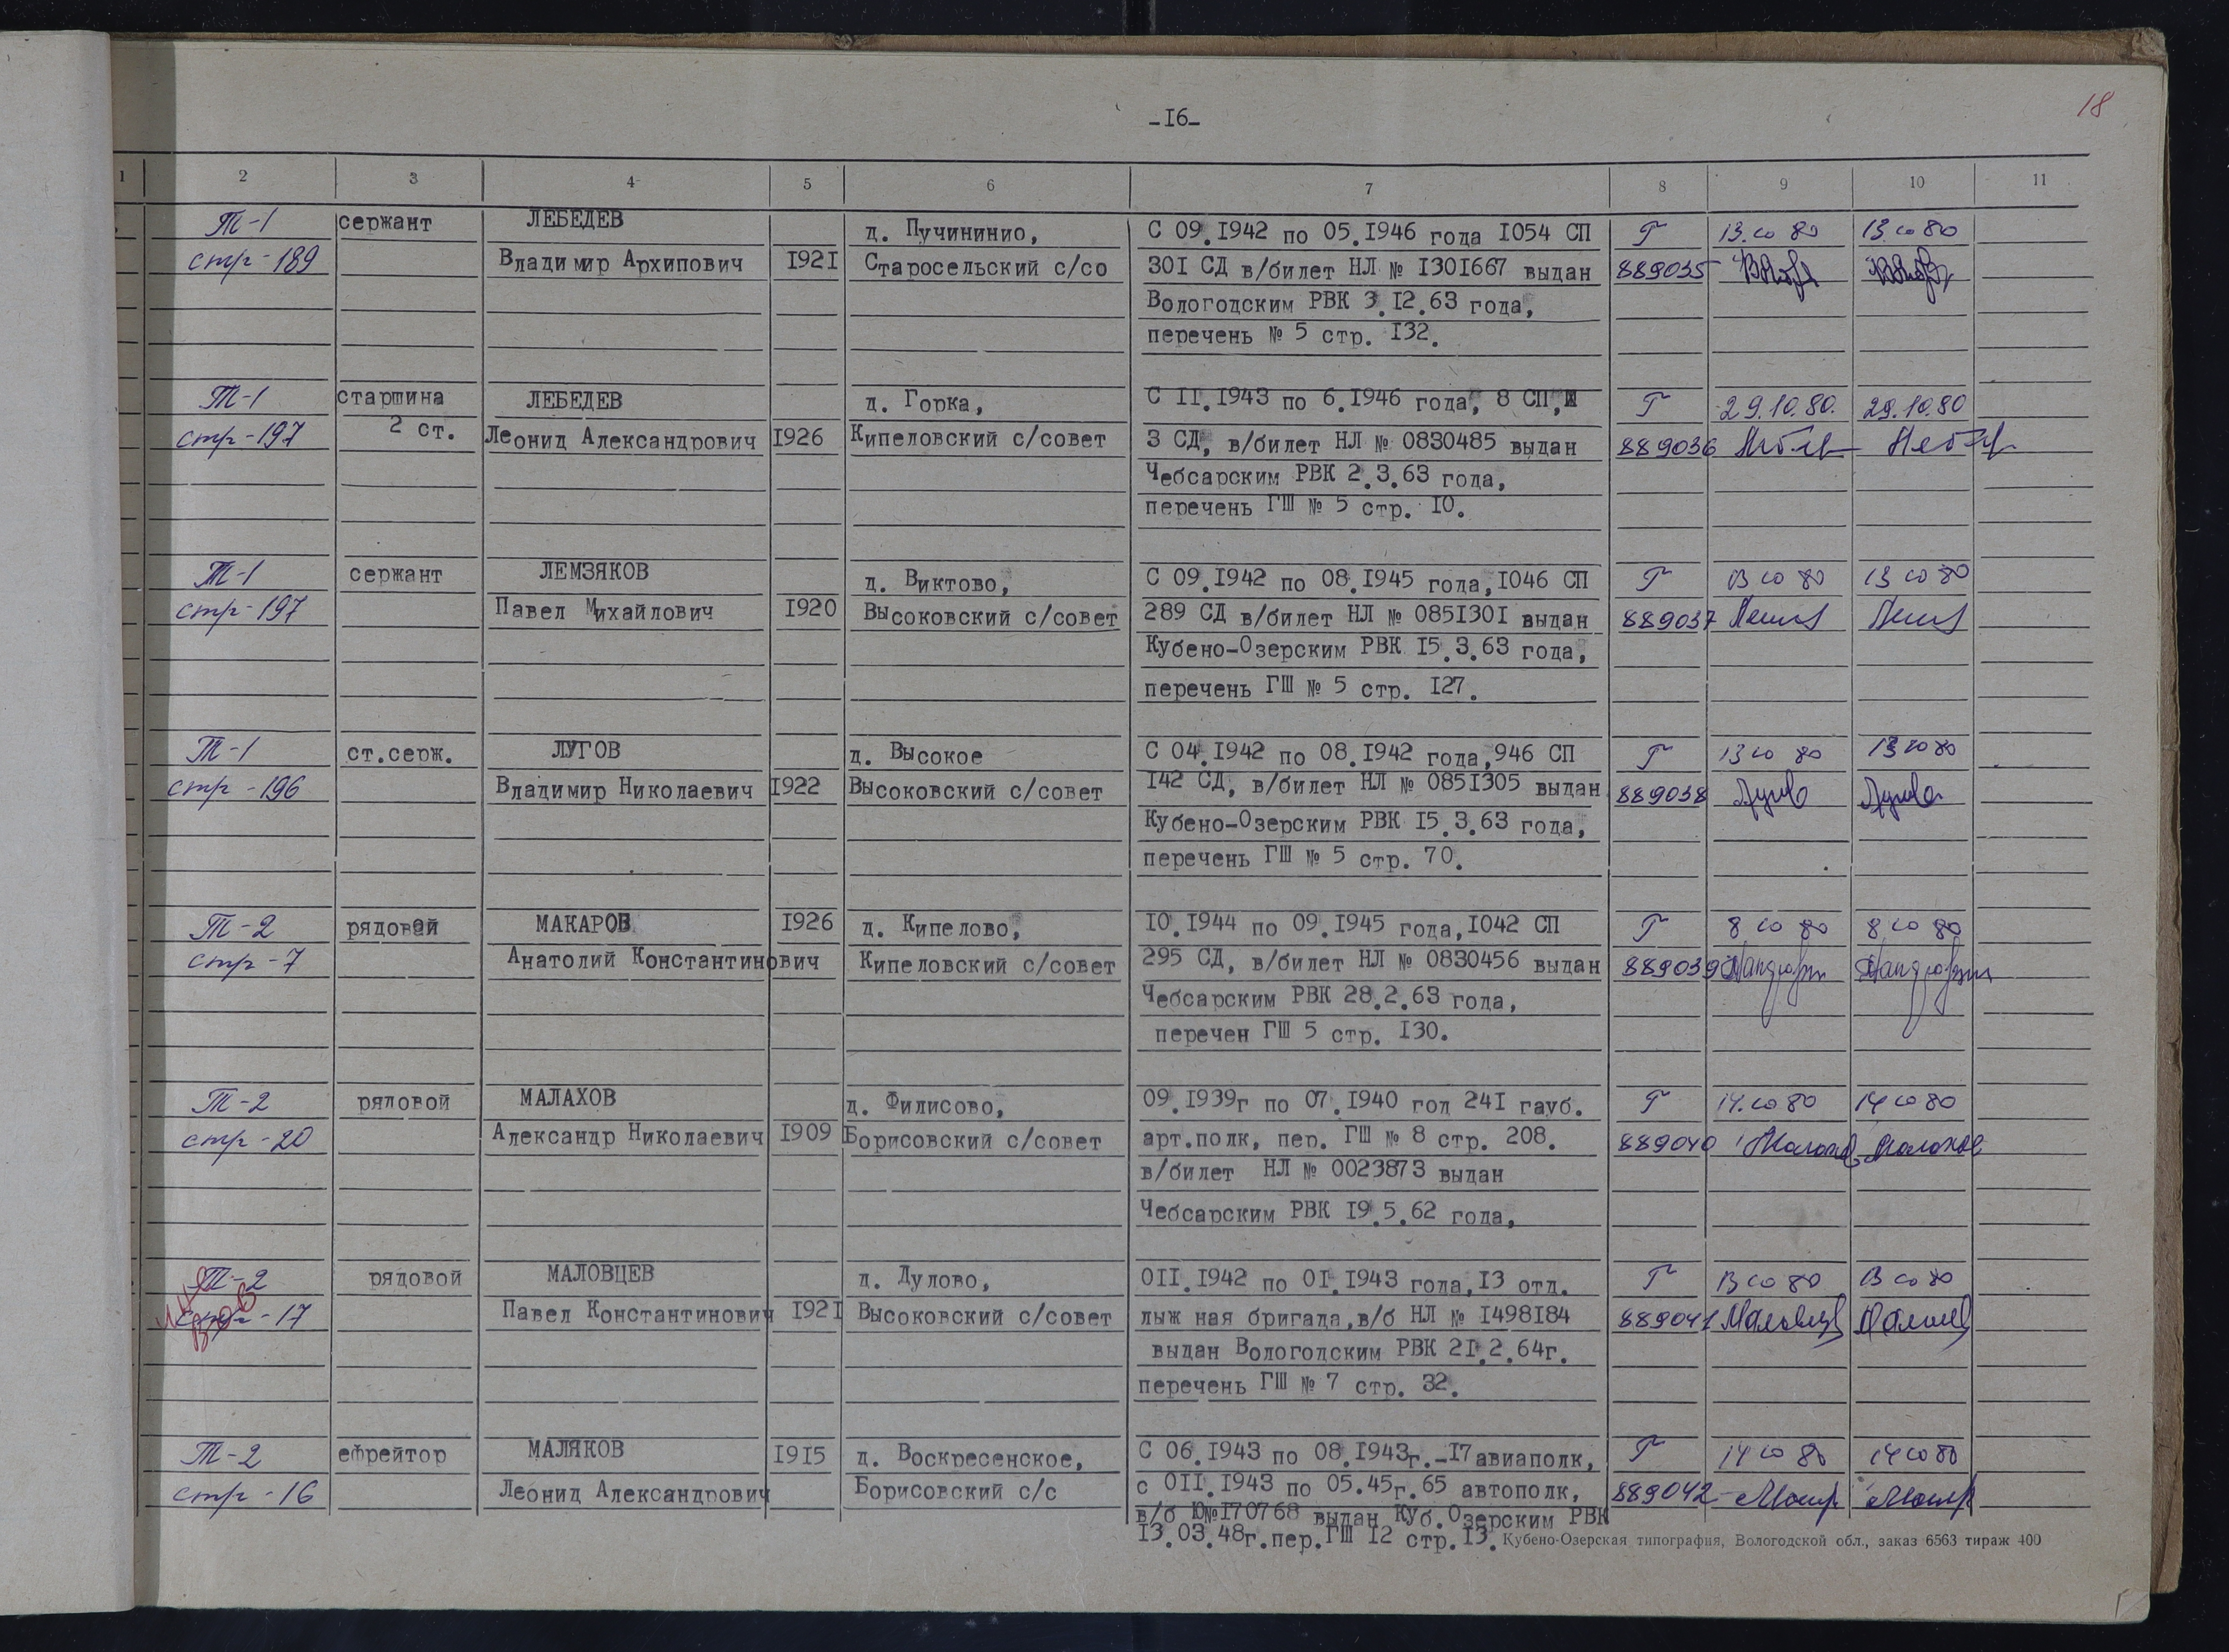 -I6-
18
1 2 3 4 5 6 7 8 9 10 11
Т-1 сержант ЛЕБЕДЕВ д. Пучининио, С 09.I942 по 05.I946 года I054 СП Г 13.10 80 13.10 80
стр-189 Владимир Архипович I92I Старосельский с/со 30I СД в/билет НЛ № I30I667 выдан 889035
Вологодским РВК 3.I2.63 года,
перечень № 5 стр. I32.
Т-1 старшина ЛЕБЕДЕВ д. Горка, С II.I943 по 6.I946 года, 8 СП, Г 29.10.80. 29.10.80
стр-197 2 ст. Леонид Александрович I926 Кипеловский с/совет 3 СД, в/билет НЛ № 0830485 выдан 889036
Чебсарским РВК 2.3.63 года,
перечень ГШ № 5 стр. I0.
Т-1 сержант ЛЕМЗЯКОВ д. Виктово, С 09.I942 по 08.I945 года,I046 СП Г 13 10 80 13 10 80
стр-197 Павел Михайлович I920 Высоковский с/совет 289 СД в/билет НЛ № 085I30I выдан 889037
Кубено-Озерским РВК I5.3.63 года,
перечень ГШ № 5 стр. I27.
Т-1 ст.серж. ЛУГОВ д. Высокое С 04.I942 по 08.I942 года,946 СП Г 13 10 80 13 10 80
стр-196 Владимир Николаевич I922 Высоковский с/совет I42 СД, в/билет НЛ № 085I305 выдан 889038
Кубено-Озерским РВК I5.3.63 года,
перечень ГШ № 5 стр. 70.
Т-2 рядовой МАКАРОВ I926 д. Кипелово, I0.I944 по 09.I945 года,I042 СП Г 8 10 80 8 10 80
стр-7 Анатолий Константинович Кипеловский с/совет 295 СД, в/билет НЛ № 0830456 выдан 889039
Чебсарским РВК 28.2.63 года,
перечен ГШ 5 стр. I30.
Т-2 рядовой МАЛАХОВ д. Филисово, 09.I939г по 07.I940 год 24I гауб. Г 14.10 80 14 10 80
стр-20 Александр Николаевич I909 Борисовский с/совет арт.полк, пер. ГШ № 8 стр. 208. 889040
в/билет НЛ № 0023873 выдан
Чебсарским РВК I9.5.62 года,
Т-2 рядовой МАЛОВЦЕВ д. Дулово, 0II.I942 по 0I.I943 года,I3 отд. Г 13 10 80 13 10 80
стр-17 Павел Константинович I92I Высоковский с/совет лыж ная бригада,в/б НЛ № I498I84 889041
выдан Вологодским РВК 2I.2.64г.
перечень ГШ № 7 стр. 32.
Т-2 ефрейтор МАЛЯКОВ I9I5 д. Воскресенское, С 06.I943 по 08.I943г.-I7авиаполк, Г 14 10 80 14 10 80
стр-16 Леонид Александрович Борисовский с/с с 0II.I943 по 05.45г.65 автополк, 889042
в/б Ю№I70768 выдан Куб.Озерским РВК
I3.03.48г.пер.ГШ I2 стр.I3. Кубено-Озерская типография, Вологодской обл., заказ 6563 тираж 400